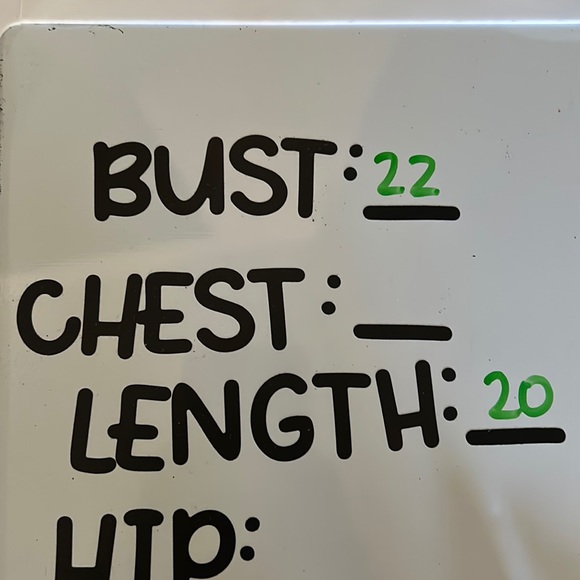 BUST: 22
CHEST:
LENGTH: 20
HIP: